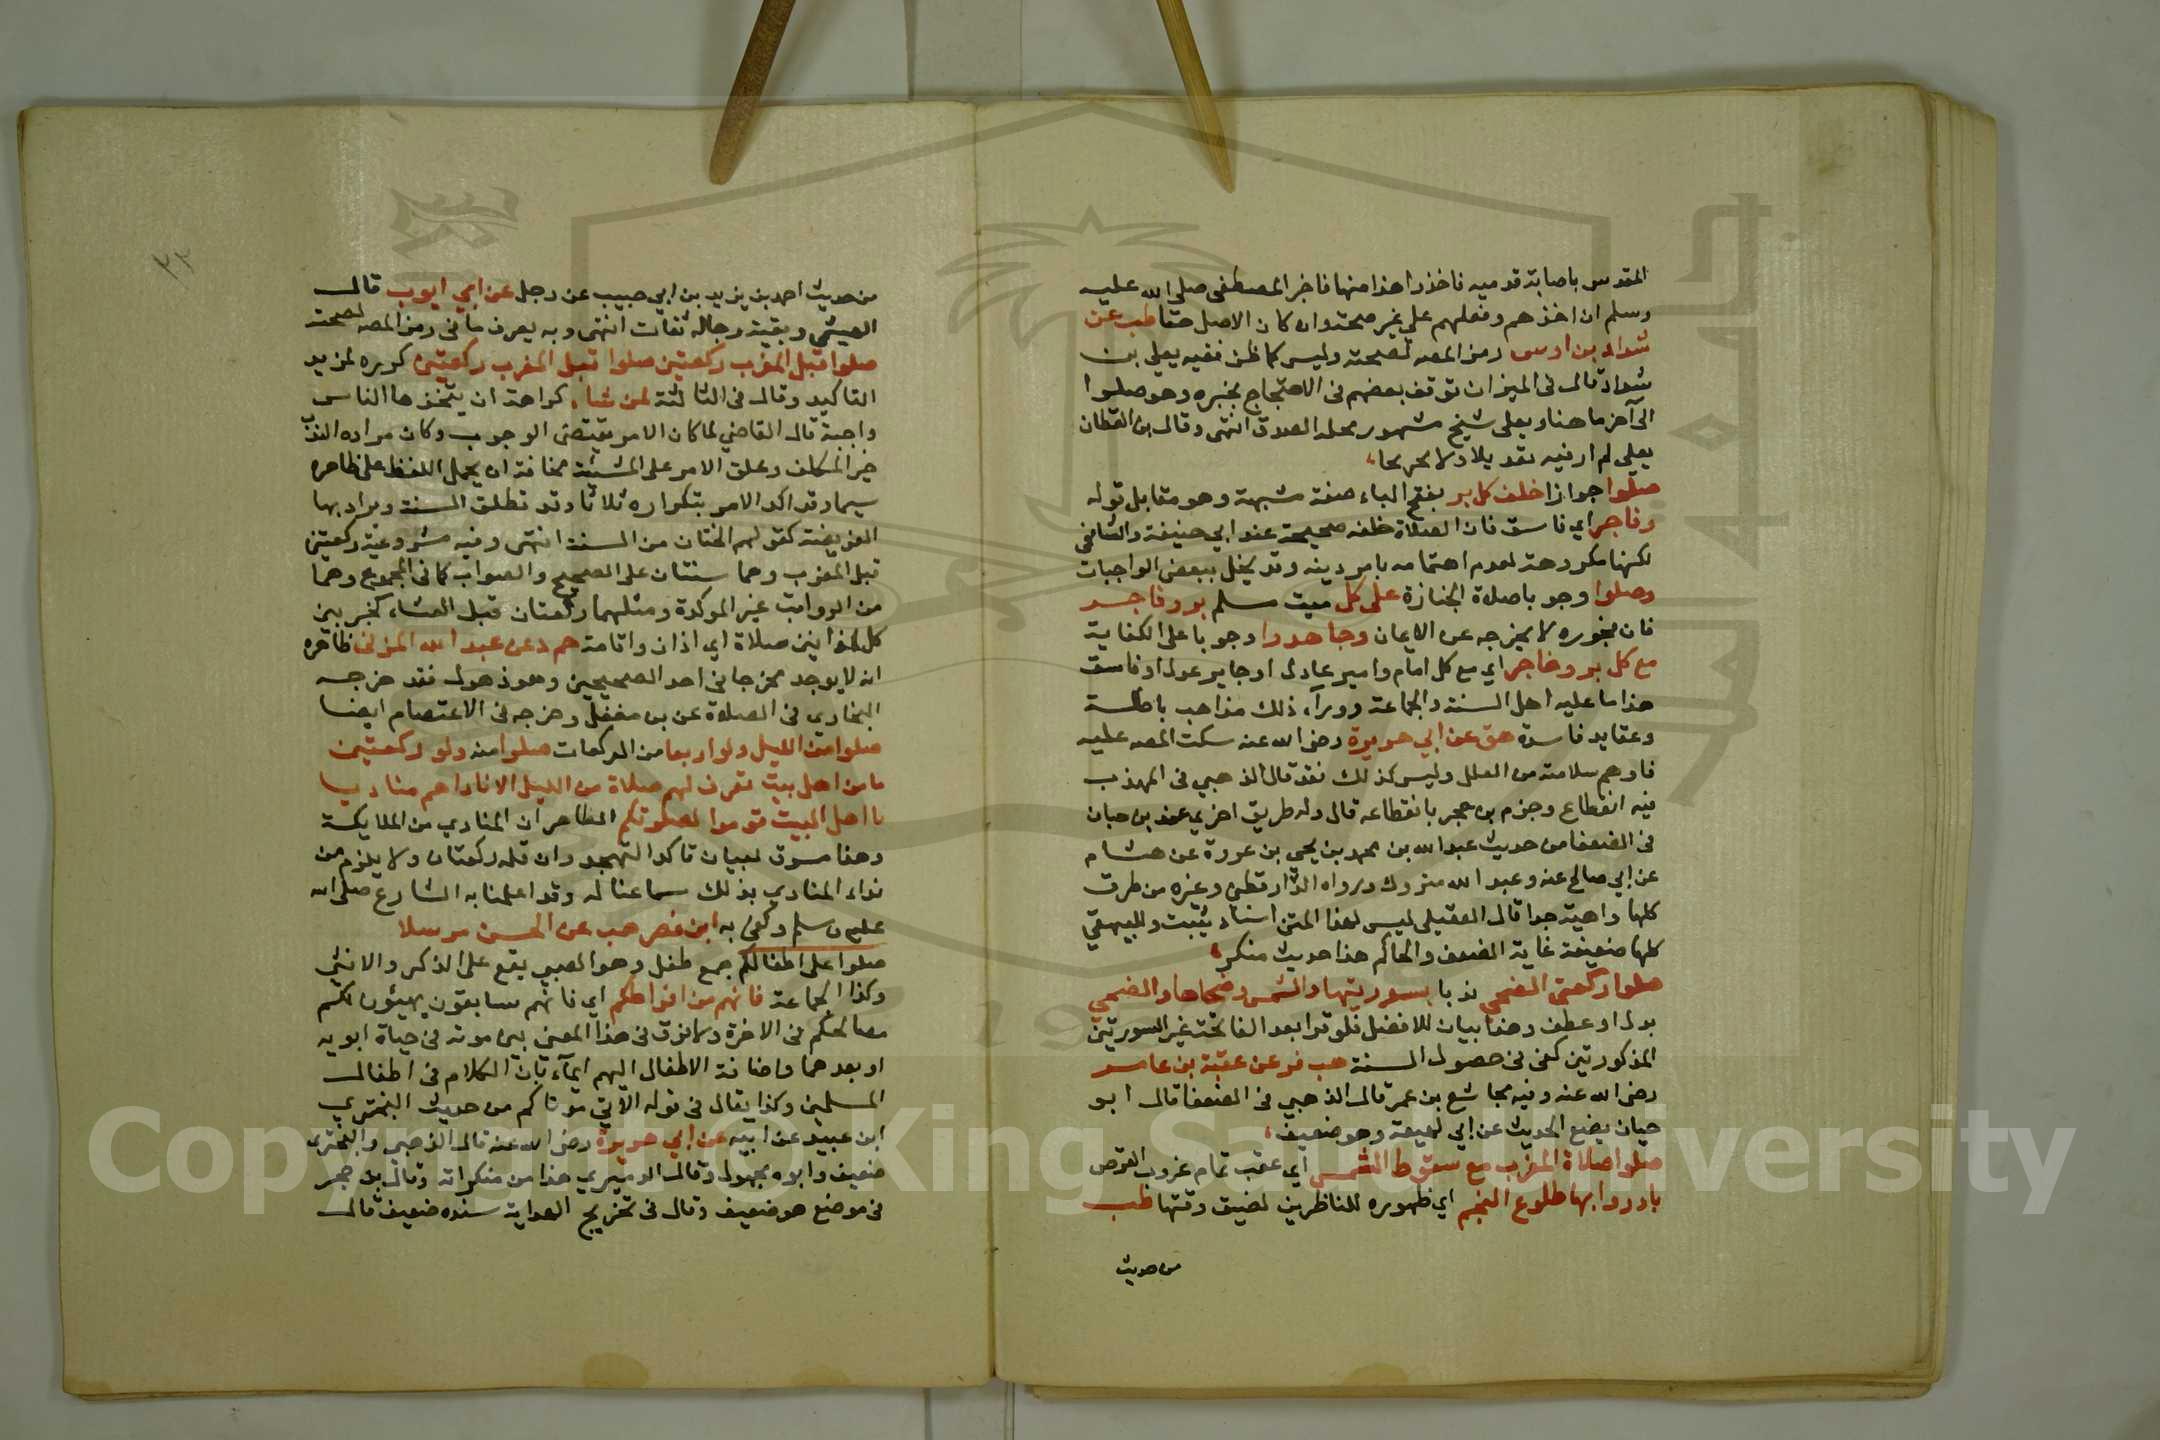 المقدس باصابة قدميه فاخذوا هذا منها فاخبر المصطفى صلى الله عليه
وسلم ان اخذهم وفعلهم علي غير صحة وان كان الاصل حقا طب عن
شداد بن اوس رمز المصه لصحته وليس كما ظن ففيه يعلي بن
شداد قال في الميزان توقف بعضهم في الاحتجاج بخبره وهو صلوا
الى آخر ما هنا ويعلى شيخ مشهور محله الصدق انتهى وقال بن القطان
يعلي لم ار فيه تعديلا ولا تجريحا
صلوا جوازا خلف كل بر بفتح الباء صفة مشبهة وهو مقابل قوله
وفاجر اي فاسق فان الصلاة خلفه صحيحة عند ابي حنيفة والشافعي
لكنها مكروهة لعدم اهتمامه بامر دينه وقد يخل ببعض الواجبات
وصلوا وجوبا صلاة الجنازة على كل ميت مسلم بر وفاجر
فان فجوره لا يخرجه عن الايمان وجاهدوا وجوبا على الكفاية
مع كل بر وفاجر اي مع كل امام وامير عادل او جاير عدل او فاسق
هذا ما عليه اهل السنة والجماعة وورآء ذلك مذاهب باطلة
وعقايد فاسدة هق عن ابي هريرة رضى الله عنه سكت المصه عليه
فاوهم سلامته من العلل وليس كذلك فقد قال الذهبي في المهذب
فيه انقطاع وجزم بن حجر بانقطاعه قال وله طريق اخرى عند بن حبان
في الضعفا من حديث عبد الله بن محمد بن يحي بن عروة عن هشام
عن ابي صالح عنه وعبد الله متروك ورواه الدارقطني وغيره من طرق
كلها واهية جدا قال العقيلي ليس لهذا المتن اسناد يثبت وللبيهقي
كلها ضعيفة غاية الضعف والحاكم هذا حديث منكر
صلوا ركعتى الضحى ندبا بسورتيهما والشمس وضحاها والضحي
بدل او عطف وهذا بيان للافضل فلو قرا بعد الفاتحة غير السورتين
المذكورتين كفى في حصول السنة هب فر عن عقبة بن عامر
رضى الله عنه وفيه مجاشع بن عمر قال الذهبي في الضعفا قال ابو
حيان يضع الحديث عن ابي لهيعة وهو ضعيف
صلوا صلاة المغرب مع سقوط الشمس اي عقب تمام غروب القرص
بادروا بها طلوع النجم اي ظهوره للناظرين لضيق وقتها طب
من حديث
٢٣
من حديث احمد بن يزيد بن ابي حبيب عن رجل عن ابي ايوب قال
الهيثمي وبقية رجاله ثقات انتهى وبه يعرف ما في رمز المصه لصحته
صلوا قبل المغرب ركعتين صلوا قبل المغرب ركعتين كرره لمزيد
التاكيد وقال في الثالثة لمن شاء كراهة ان يتخذها الناس
واجبة قال القاضي لما كان الامر يقتضى الوجوب وكان مراده الندب
خير المكلف وعلق الامر على المشيئة مخافة ان يحمل اللفظ على ظاهره
سيما وقد اكد الامر بتكراره ثلاثا وقد تطلق السنة ويراد بها
الفريضة كقولهم الختان من السنة انتهى وفيه مشروعية ركعتين
قبل المغرب وهما سنتان على الصحيح والصواب كما في المجموع وهما
من الرواتب غير الموكدة ومثلهما ركعتان قبل العشاء كخبر بين
كل اذانين صلاة اي اذان واقامة حم د عن عبد الله المزنى ظاهره
انه لا يوجد مخرجا في احد الصحيحين وهو ذهول فقد خرجه
البخاري في الصلاة عن بن مغفل وخرجه في الاعتصام ايضا
صلوا من الليل ولو اربعا من الركعات صلوا منه ولو ركعتين
ما من اهل بيت تعرف لهم صلاة من الليل الا ناداهم مناديا
يا اهل البيت قوموا لصلوتكم الظاهر ان المنادي من الملايكة
وهذا مسوق لبيان تاكد التهجد وان قله ركعتان ولا يلزم من
نداء المنادي بذلك سماعنا له وقد اعلمنا به الشارع صلى الله
عليه وسلم وكفى به ابن نصر هب عن الحسن مرسلا
صلوا على اطفالكم جمع طفل وهو الصبي يقع على الذكر والانثي
وكذا الجماعة فانهم من افراطكم اي فانهم سابقون يهيئون لكم
مصالحكم في الاخرة ولا فرق في هذا المعني بين موته في حياة ابويه
او بعدهما واضافة الاطفال اليهم ايمآء بان الكلام في اطفال
المسلمين وكذا يقال في قوله الاتي موتاكم من حديث البختري
ابن عبيد عن ابيه عن ابي هريرة رضى الله عنه قال الذهبي والبختري
ضعيف وابوه مجهول وقال الدميري هذا من منكراته وقال بن حجر
في موضع هو ضعيف وقال في تخريج الهداية سنده ضعيف قال
Copyright © King Saud University